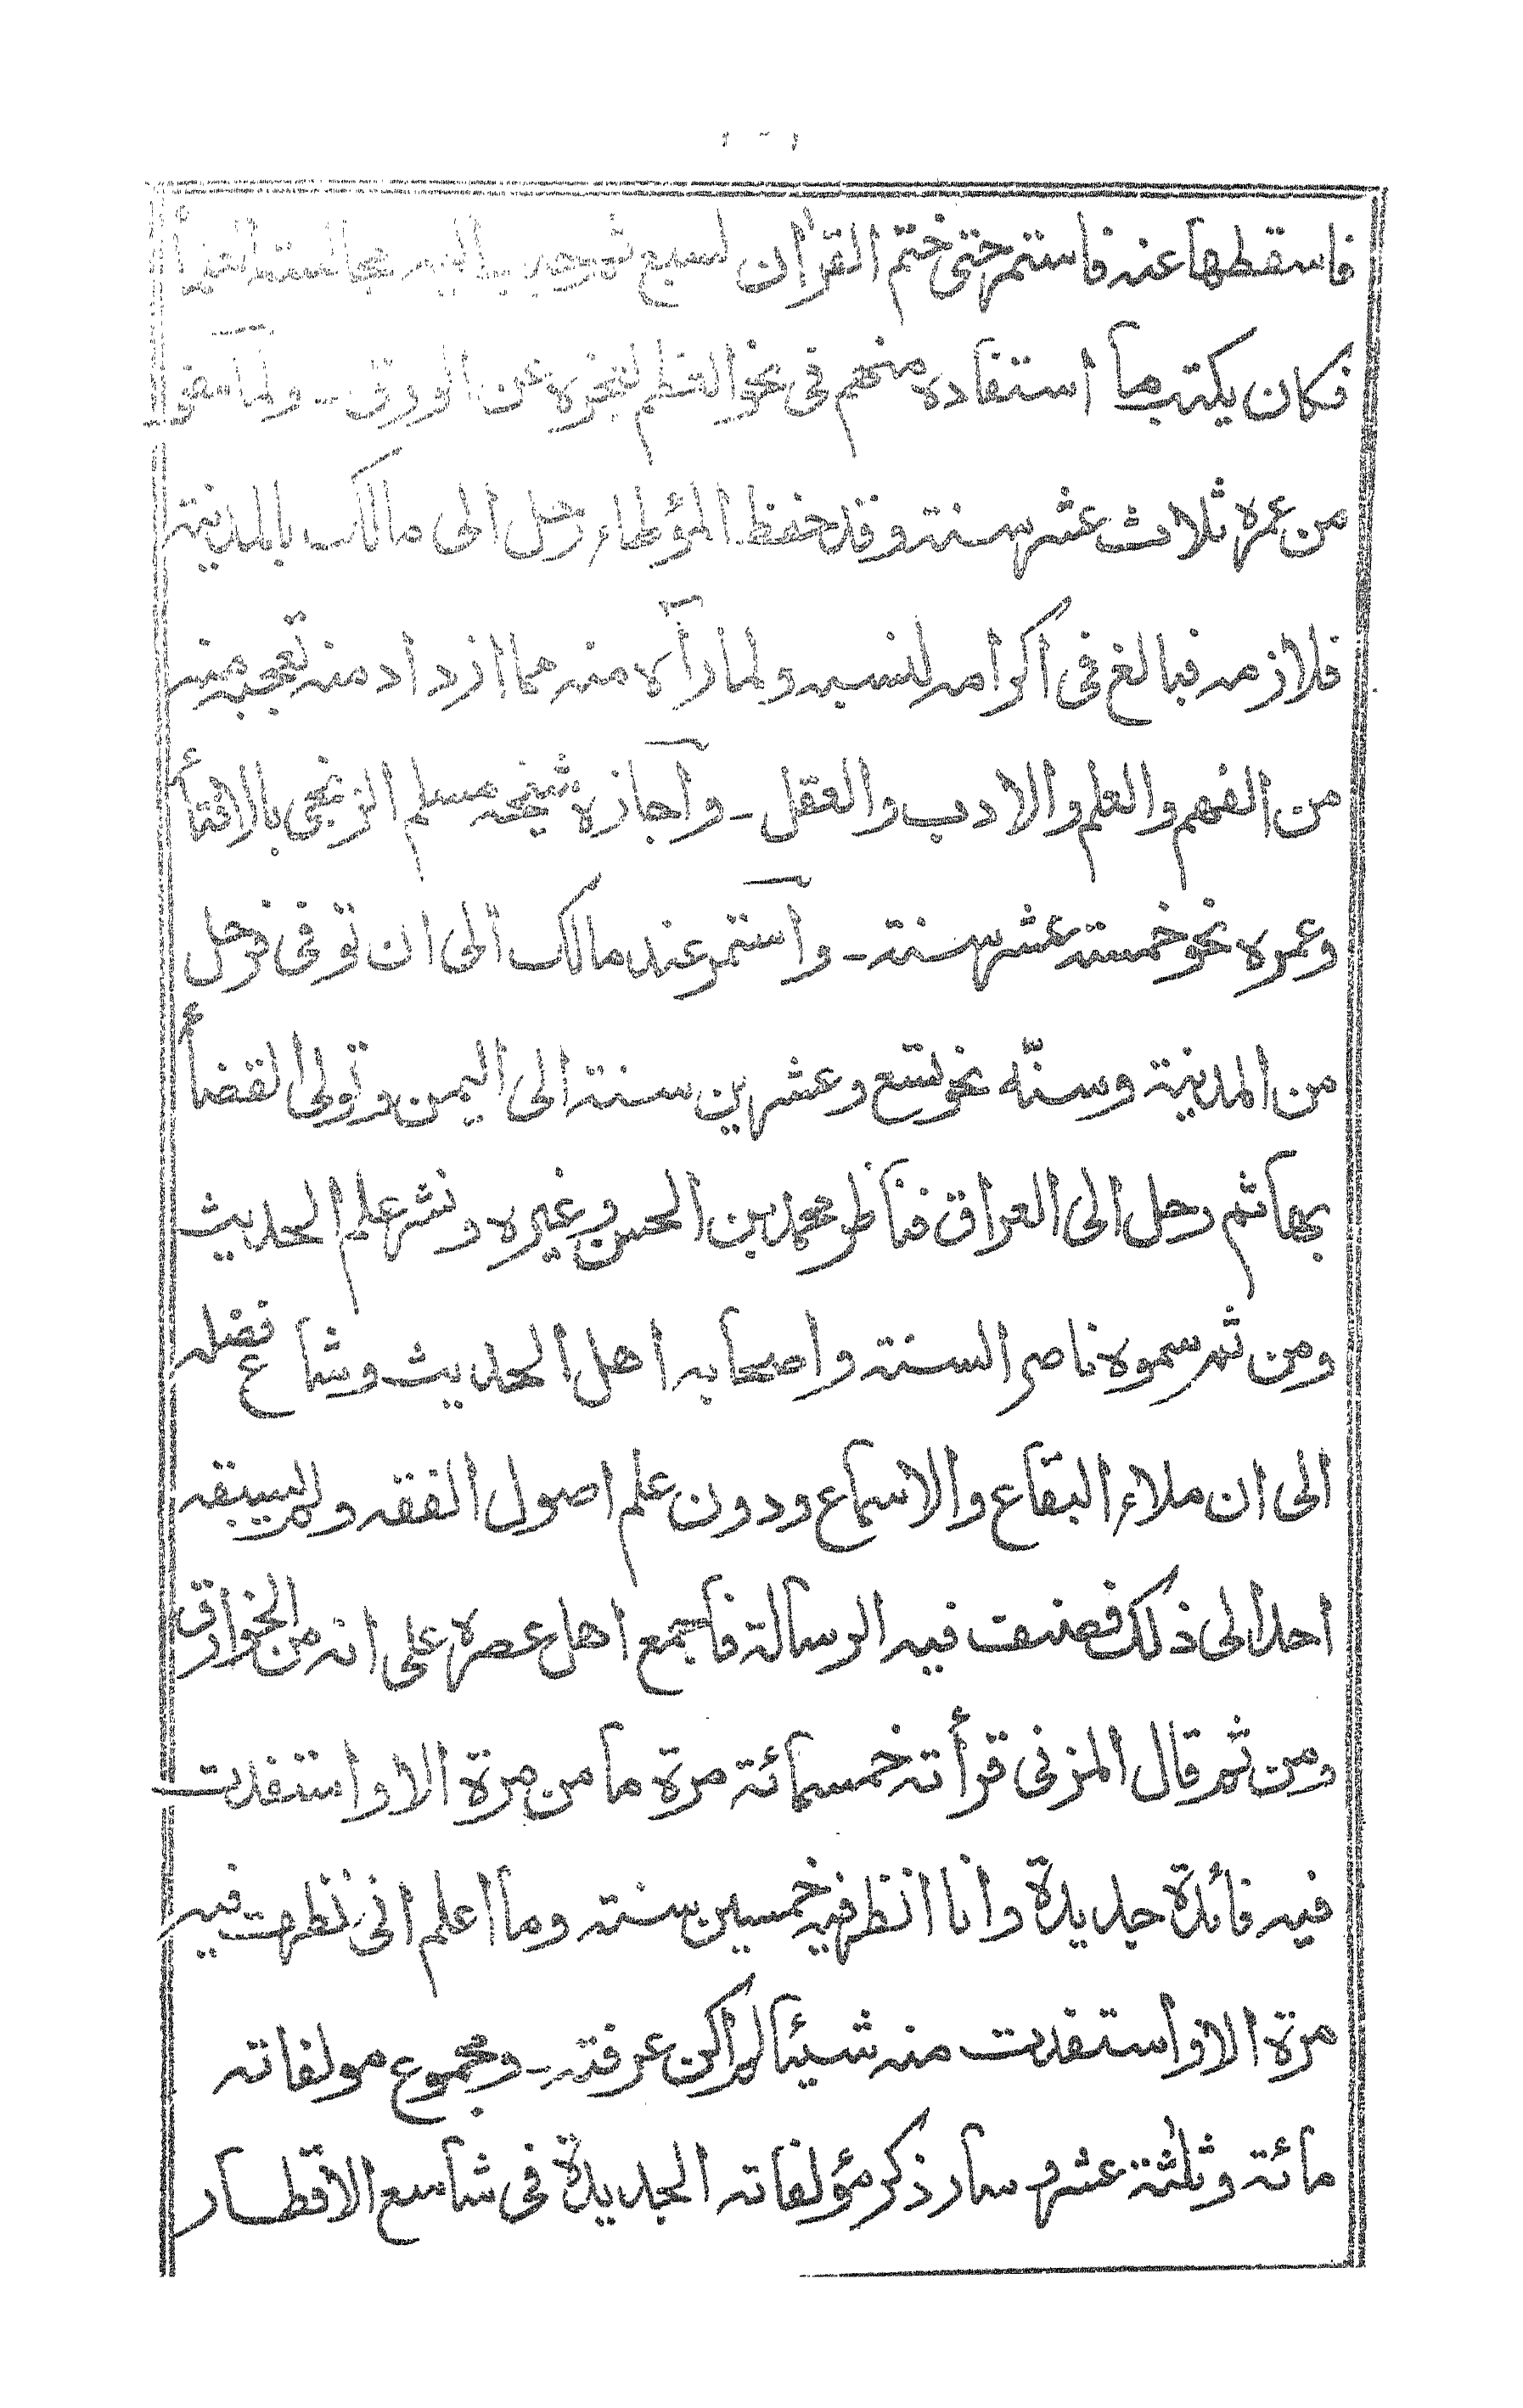 فاسقطها عنه فاستمر حتى ختم القرآن لسبع ثم حبب اليه مجالسة العلمأ
فكان يكتب ما استفاده منهم فى نحو العظم لعجزه عن الورق ـ ولما
من عمره ثلاث عشر سنة وقد حفظ المؤطاء رحل الى مالك بالمدينة
فلازمه فبالغ فى اكرامه لنسبه ولما رآه منه مما ازداد منه تعجبه منه
من الفهم والعلم والادب والعقل ـ وآجازه شيخه مسلم الزنجى بالافتأء
وعمره نحو خمسة عشر سنة ـ وآستمر عند مالك الى ان توفى فرحل
من المدينة وسنّه نحو تسع وعشرين سنة الى اليمن وتولى القضأء
بها ثم رحل الى العراق فناظر محمد بن الحسن وغيره ونشر علم الحديث
ومن ثم سموه ناصر السنة واصحابه اهل الحديث وشاع فضله
الى ان ملاء البقاع والاسماع ودون علم اصول الفقه ولم يسبقه
احد الى ذلك فصنف فيه الرسالة فأجمع اهل عصره على انه من الخوارق
ومن ثم قال المزنى قرأته خمسمائة مرة ما من مرة الا واستفدت
فيه فائدة جديدة وانا انظر فيه خمسين سنة وما اعلم انى نظرت فيه
مرة الا واستفدت منه شيئا لم اكن عرفته ـ ومجموع مولفاته
مائة وثلثة عشر وسار ذكر مؤلفاته الجديدة فى شاسع الاقطار